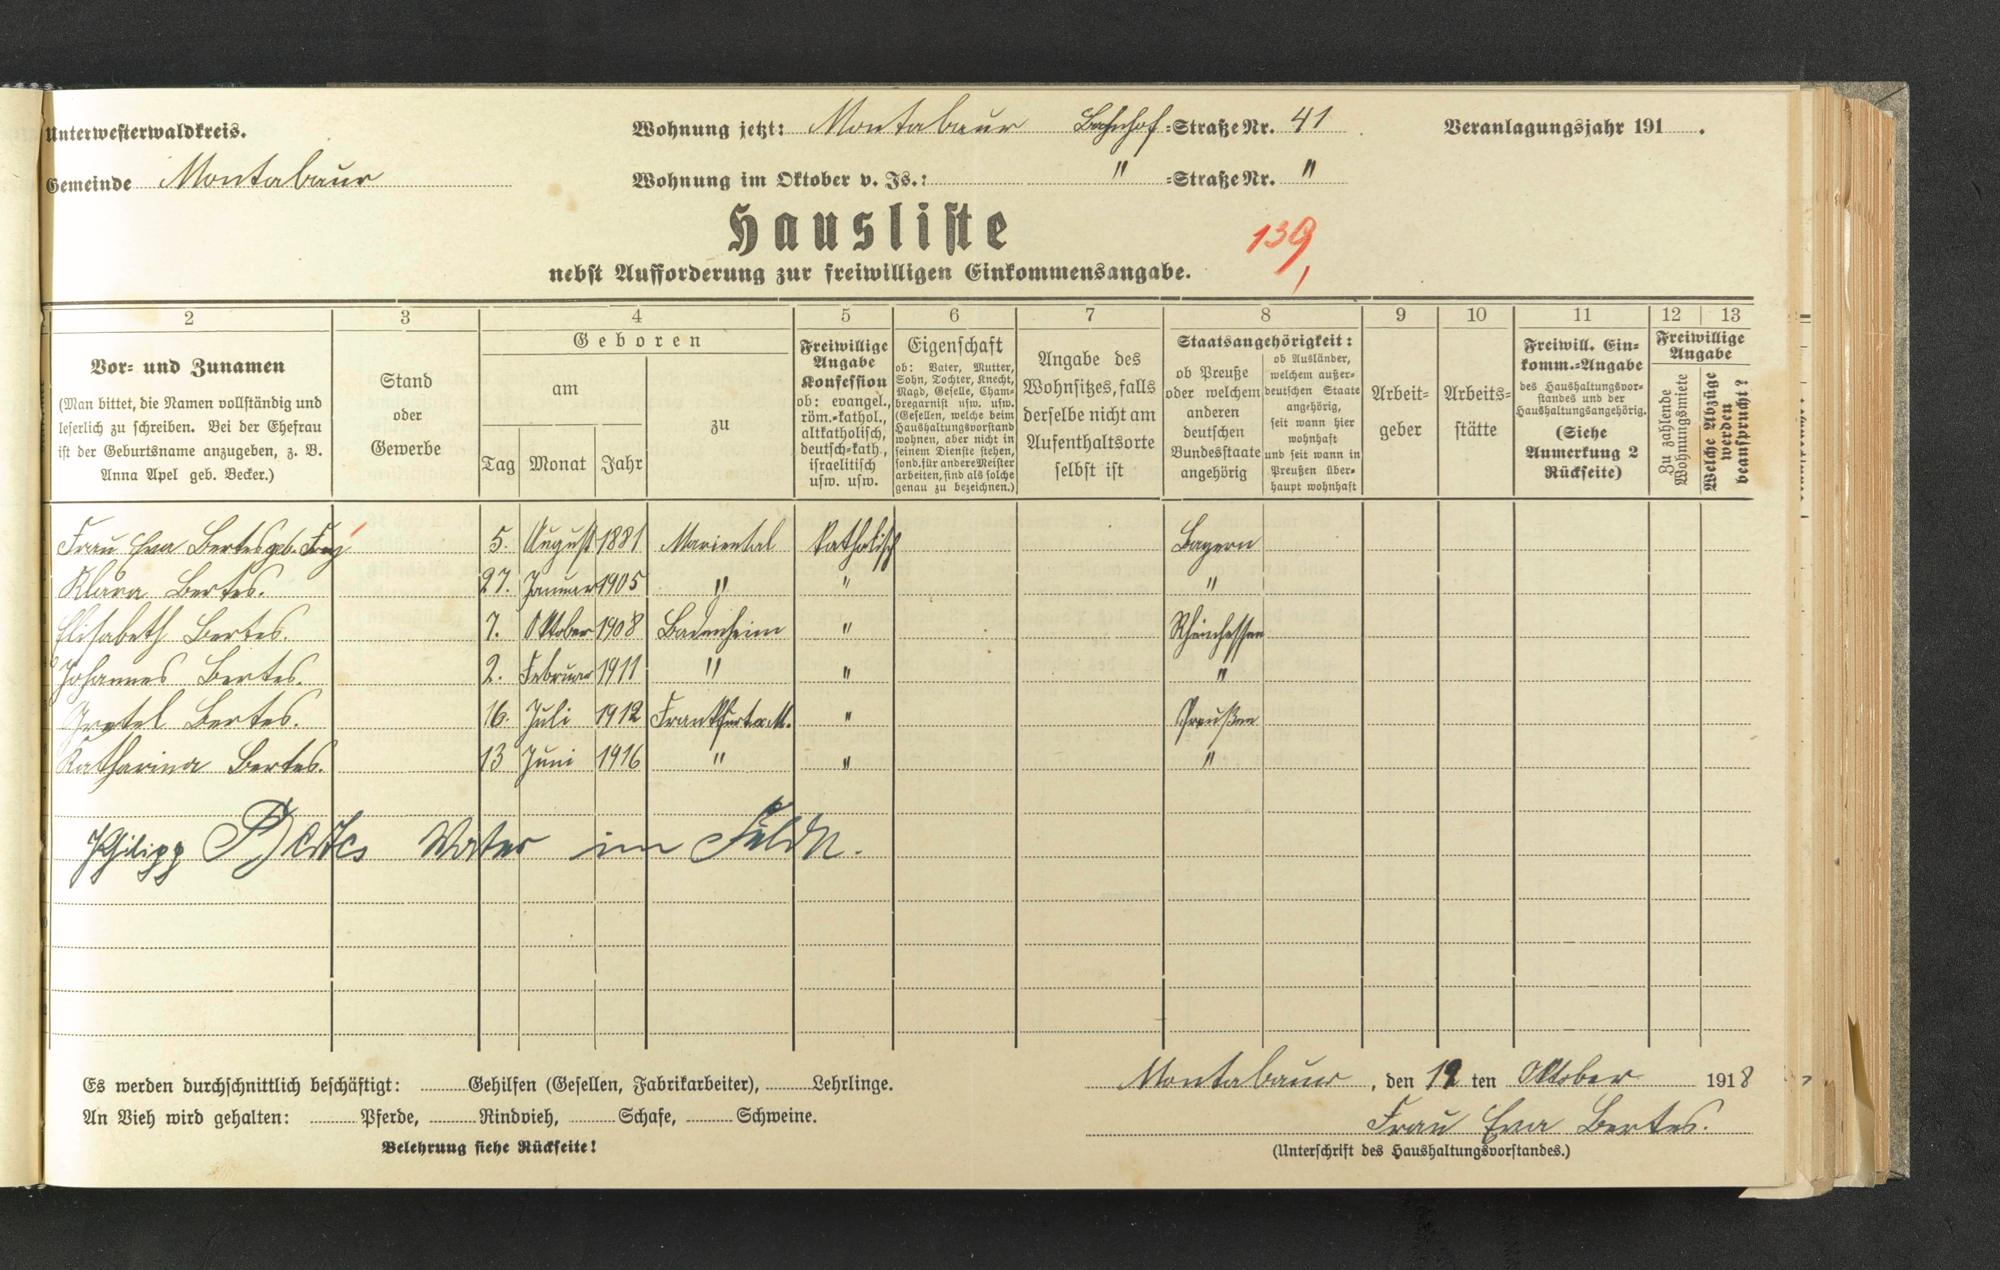 Unterwesterwaldkreis.
Wohnung jetzt: Montabaur Bahnhof-Straße Nr. 41
Veranlagungsjahr 191 .
Gemeinde Montabaur
Wohnung im Oktober v. Js.: " -Straße Nr. "
Hausliste
139
nebst Aufforderung zur freiwilligen Einkommensangabe.
2 3 4 5 6 7 8 9 10 11 12 13
Vor- und Zunamen
(Man bittet, die Namen vollständig und
leserlich zu schreiben. Bei der Ehefrau
ist der Geburtsname anzugeben, z. B.
Anna Apel geb. Becker.)
Stand
oder
Gewerbe
Geboren
am
Tag Monat Jahr
zu
Freiwillige
Angabe
Konfession
ob: evangel.,
röm.-kathol.,
altkatholisch,
deutsch-kath.,
israelitisch
usw. usw.
Eigenschaft
ob: Vater, Mutter,
Sohn, Tochter, Knecht,
Magd, Geselle, Cham-
bregarnist usw. usw.
(Gesellen, welche beim
Haushaltungsvorstand
wohnen, aber nicht in
seinem Dienste stehen,
sond. für andere Meister
arbeiten, sind als solche
genau zu bezeichnen.)
Angabe des
Wohnsitzes, falls
derselbe nicht am
Aufenthaltsorte
selbst ist
Staatsangehörigkeit:
ob Preuße
oder welchem
anderen
deutschen
Bundesstaate
angehörig
ob Ausländer,
welchem außer-
deutschen Staate
angehörig,
seit wann hier
wohnhaft
und seit wann in
Preußen über-
haupt wohnhaft
Arbeit-
geber
Arbeits-
stätte
Freiwill. Ein-
komm.-Angabe
des Haushaltungsvor-
standes und der
Haushaltungsangehörig.
(Siehe
Anmerkung 2
Rückseite)
Freiwillige
Angabe
Zu zahlende
Wohnungsmiete
Welche Abzüge
werden
beansprucht?
Frau Eva Bertes geb. Frey 5. August 1881 Mariental Katholisch Bayern
Klara Bertes. 27. Januar 1905 " " "
Elisabeth Bertes. 7. Oktober 1908 Badenheim " Rheinhessen
Johannes Bertes. 2. Februar 1911 " " "
Gretel Bertes. 16. Juli 1912 Frankfurt a. M. " Preußen
Katharina Bertes. 13 Juni 1916 " " "
Philipp Bertes Vater im Felde.
Es werden durchschnittlich beschäftigt: Gehilfen (Gesellen, Fabrikarbeiter), Lehrlinge.
Montabaur, den 19 ten Oktober 1918
An Vieh wird gehalten: Pferde, Rindvieh, Schafe, Schweine.
Frau Eva Bertes.
Belehrung siehe Rückseite!
(Unterschrift des Haushaltungsvorstandes.)